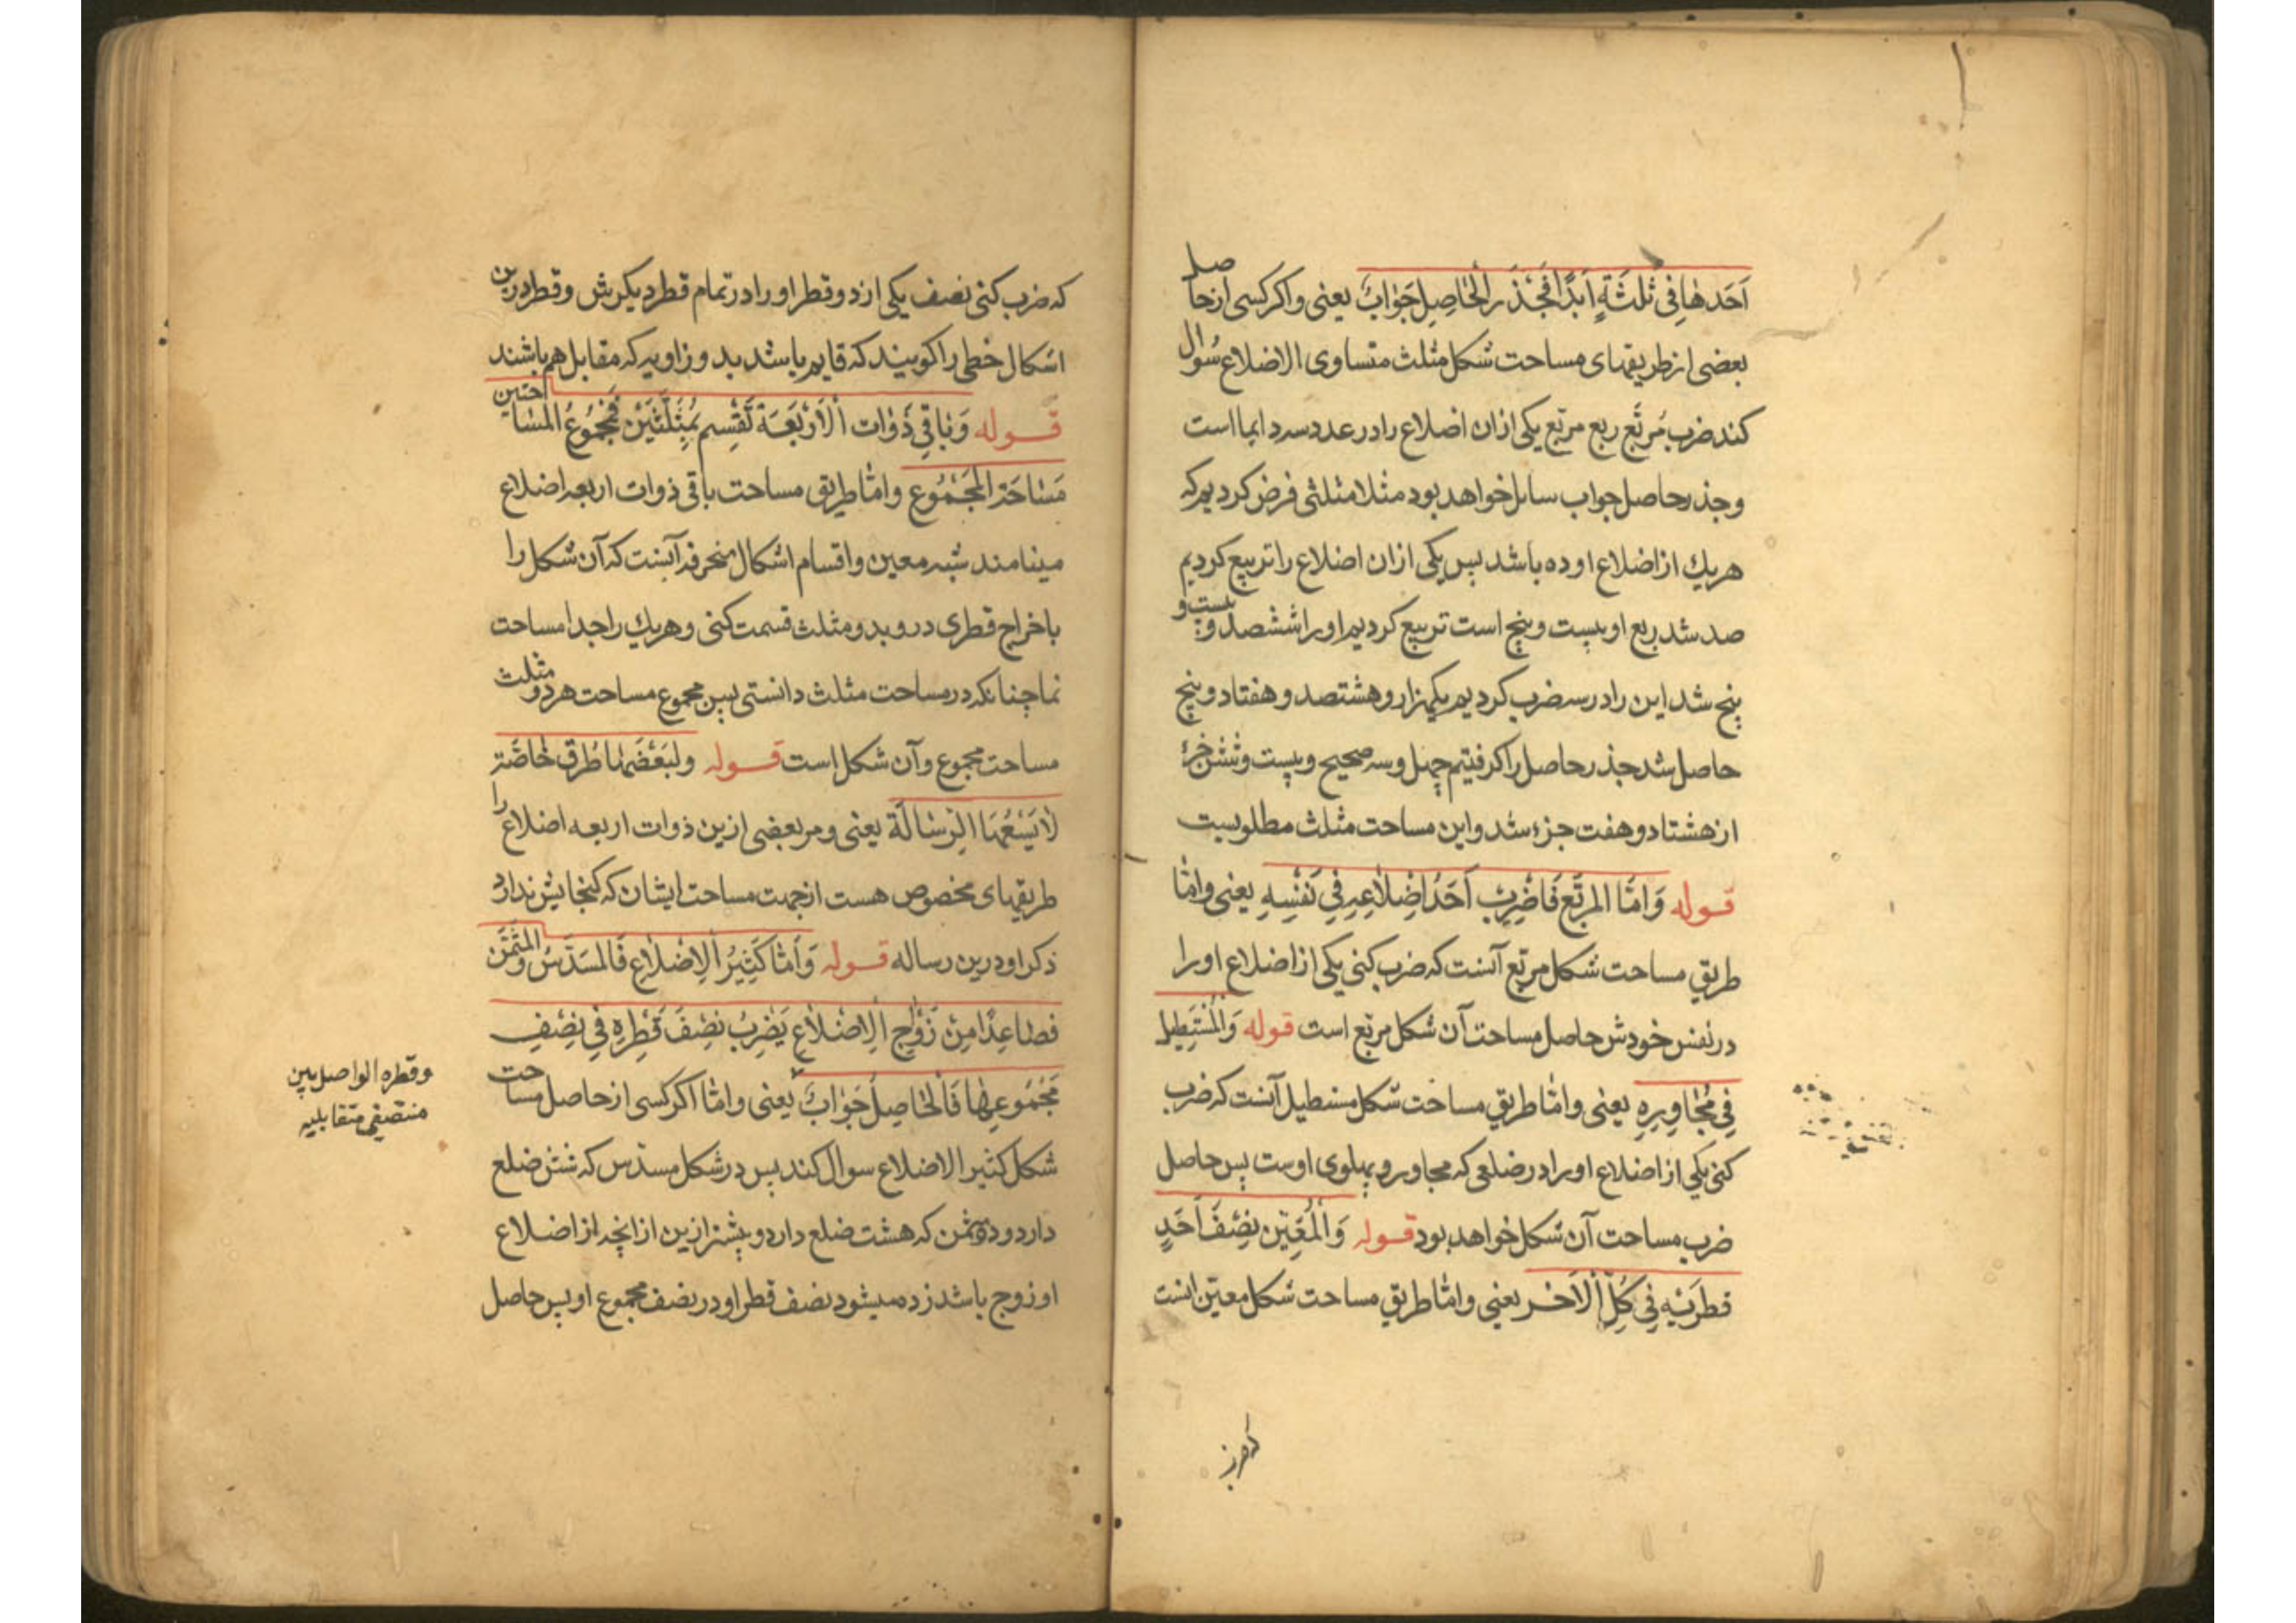 اَحَدهٰا فِی ثَلٰثَةٍ اَبَدًا فَجَذْرُ الْحٰاصِلِ جَوٰابٌ یعنی واکر کسی ازحاصل
بعضی از طریقهای مساحت شکل مثلث متساوی الاضلاع سُوال
کند ضرب مُربّع ربع مربّع یکی ازان اضلاع را در عدد سه دایما است
وجذر حاصل جواب سایل خواهد بود مثلا مثلثی فرض کردیم که
هریك از اضلاع او ده باشد پس یکی ازان اضلاع را تربیع کردیم
صد شد ربع او بیست وپنج است تربیع کردیم او را ششصد وبیست و
پنج شد این را در سه ضرب کردیم یکهزار و هشتصد و هفتاد وپنج
حاصل شد جذر حاصل را کرفتیم چهل وسه صحیح وبیست وشش جزءٔ
از هشتاد و هفت جزء شد واین مساحت مثلث مطلوبست
قوله وَامّا المربّع فَاضْرِبْ اَحَدَ اَضْلاٰعِهِ فِی نَفْسِهِ یعنی وامّا
طریق مساحت شکل مربّع آنست که ضرب کنی یکی از اضلاع او را
در نفس خودش حاصل مساحت آن شکل مربّع است قوله وَالْمُسْتَطِیل
فِی مُجٰاوِرِهِ یعنی وامّا طریق مساحت شکل مستطیل آنست که ضرب
کنی یکی از اضلاع او را در ضلعی که مجاور و پهلوی اوست پس حاصل
ضرب مساحت آن شکل خواهد بود قوله وَالْمُعَیّن نِصْفَ اَحَدِ
قطرَیْهِ فِی کُلِّ الْآخر یعنی وامّا طریق مساحت شکل معیّن انست
که ضرب کنی نصف یکی از دو قطر او را در تمام قطر دیکرش وقطر درین
اشکال خطی را کویند که قایم باشد بدو زاویه که مقابل هم باشند
قوله وَبٰاقِی ذَوٰات الْاَرْبَعَة تُقْسِم بِمُثَلَّثَیْنِ فَمَجْمُوعُ المسٰاحتین
مَسٰاحَة الْمَجْمُوعِ وامّا طریق مساحت باقی ذوات اربعه اضلاع
مینامند شبه معین واقسام اشکال منحرفه آنست که آن شکل را
باخراج قطری در و بدو مثلث قسمت کنی وهریك را جدا مساحت
نما چنانکه در مساحت مثلث دانستی پس مجموع مساحت هر دو مثلث
مساحت مجموع وآن شکل است قوله ولِبَعْضِهٰا طُرُق خٰاصَّة
لٰا یَسَعُهَا الرِّسٰالَة یعنی ومر بعضی ازین ذوات اربعه اضلاع را
طریقهای مخصوص هست از جهت مساحت ایشان که کنجایش ندارد
ذکر او درین رساله قوله وَاَمّٰا کَثِیرُ الْاَضْلٰاعِ فَالمسَدّسُ والمثمّن
فصٰاعِدًا مِنْ زَوْجِ الْاَضْلٰاعِ یَضْرِبُ نِصْفَ قُطْرِهِ فِی نِصْفِ
مَجْمُوعِهٰا فَالْحٰاصِلُ جَوٰابٌ یعنی وامّا اکر کسی از حاصل مساحت
شکل کثیر الاضلاع سوال کند پس در شکل مسدّس که شش ضلع
دارد ودر مثمن که هشت ضلع دارد وبیشتر ازین از انچه از اضلاع
او زوج باشد زده میشود نصف قطر او در نصف مجموع او پس حاصل
وقطره الواصل بین
منتصفی متقابلیه